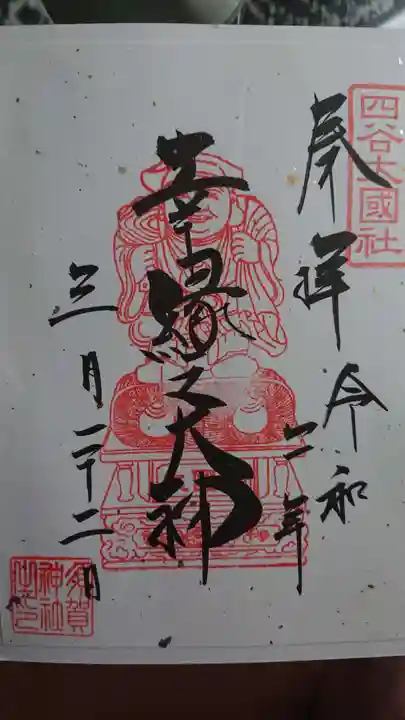 四谷大國社
奉拝 令和
六年
幸縁之大神
三月二十二日
須賀
神社
之印